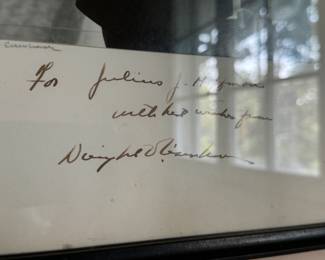 For Julius J. Hyman
with best wishes from
Dwight D Eisenhower